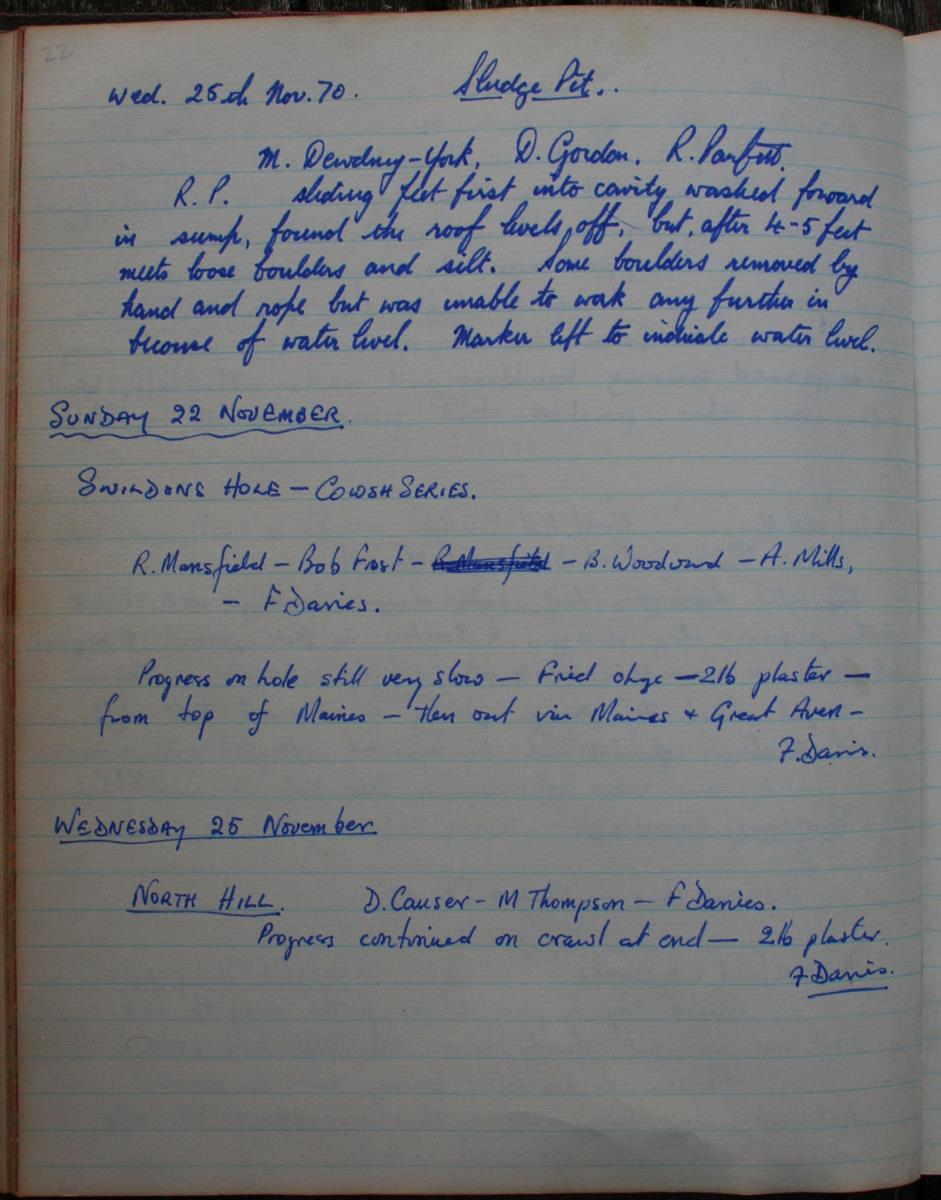 22
Wed. 25th Nov. 70. Sludge Pit.
M. Dewdney-York, D. Gordon, R. Panfett.
R. P. sliding feet first into cavity washed foward
in sump, found the roof levels off, but, after 4-5 feet
meets loose boulders and silt. Some boulders removed by
hand and rope but was unable to work any further in
because of water level. Marker left to indicate water level.
SUNDAY 22 NOVEMBER.
SWILDONS HOLE - COWSH SERIES.
R. Mansfield - Bob Frost - R. Mansfield - B. Woodward - A. Mills,
- F Davies.
Progress on hole still very slow - Fired chge - 2lb plaster -
from top of Maines - then out via Maines + Great Aven -
F. Davies.
WEDNESDAY 25 November
NORTH HILL. D. Causer - M Thompson - F Davies.
Progress continued on crawl at end - 2lb plaster.
F Davies.